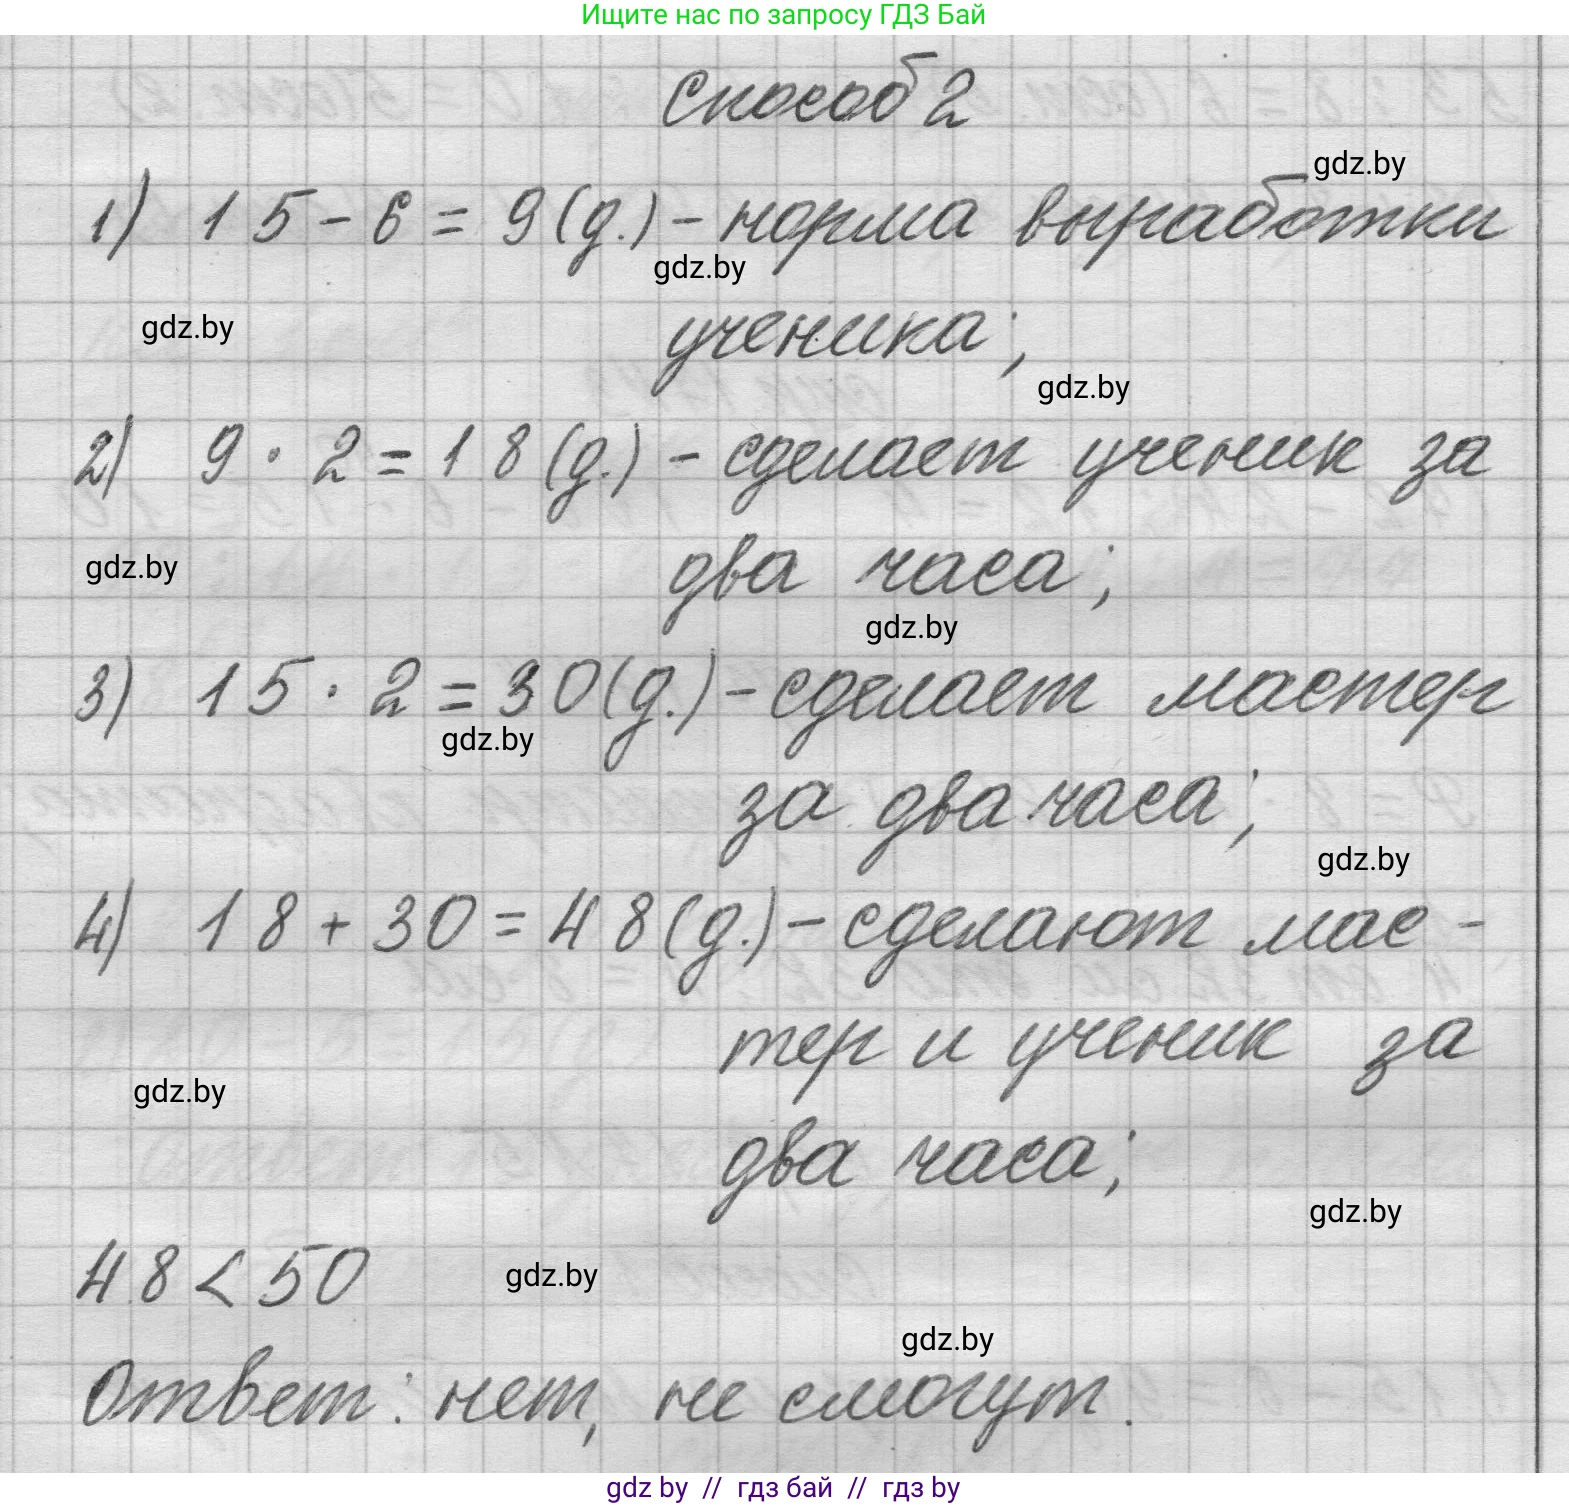 Ищите нас по запросу ГДЗ Бай
Способ 2
gdz.by
1) 15 - 6 = 9 (д.) - норма выработки
gdz.by
gdz.by
ученика;
gdz.by
2) 9 · 2 = 18 (д.) - сделает ученик за
gdz.by
два часа;
gdz.by
3) 15 · 2 = 30 (д.) - сделает мастер
gdz.by
за два часа;
gdz.by
4) 18 + 30 = 48 (д.) - сделают мас-
тер и ученик за
gdz.by
два часа;
gdz.by
48 < 50
gdz.by
gdz.by
Ответ: нет, не смогут.
gdz by // гдз бай // gdz by